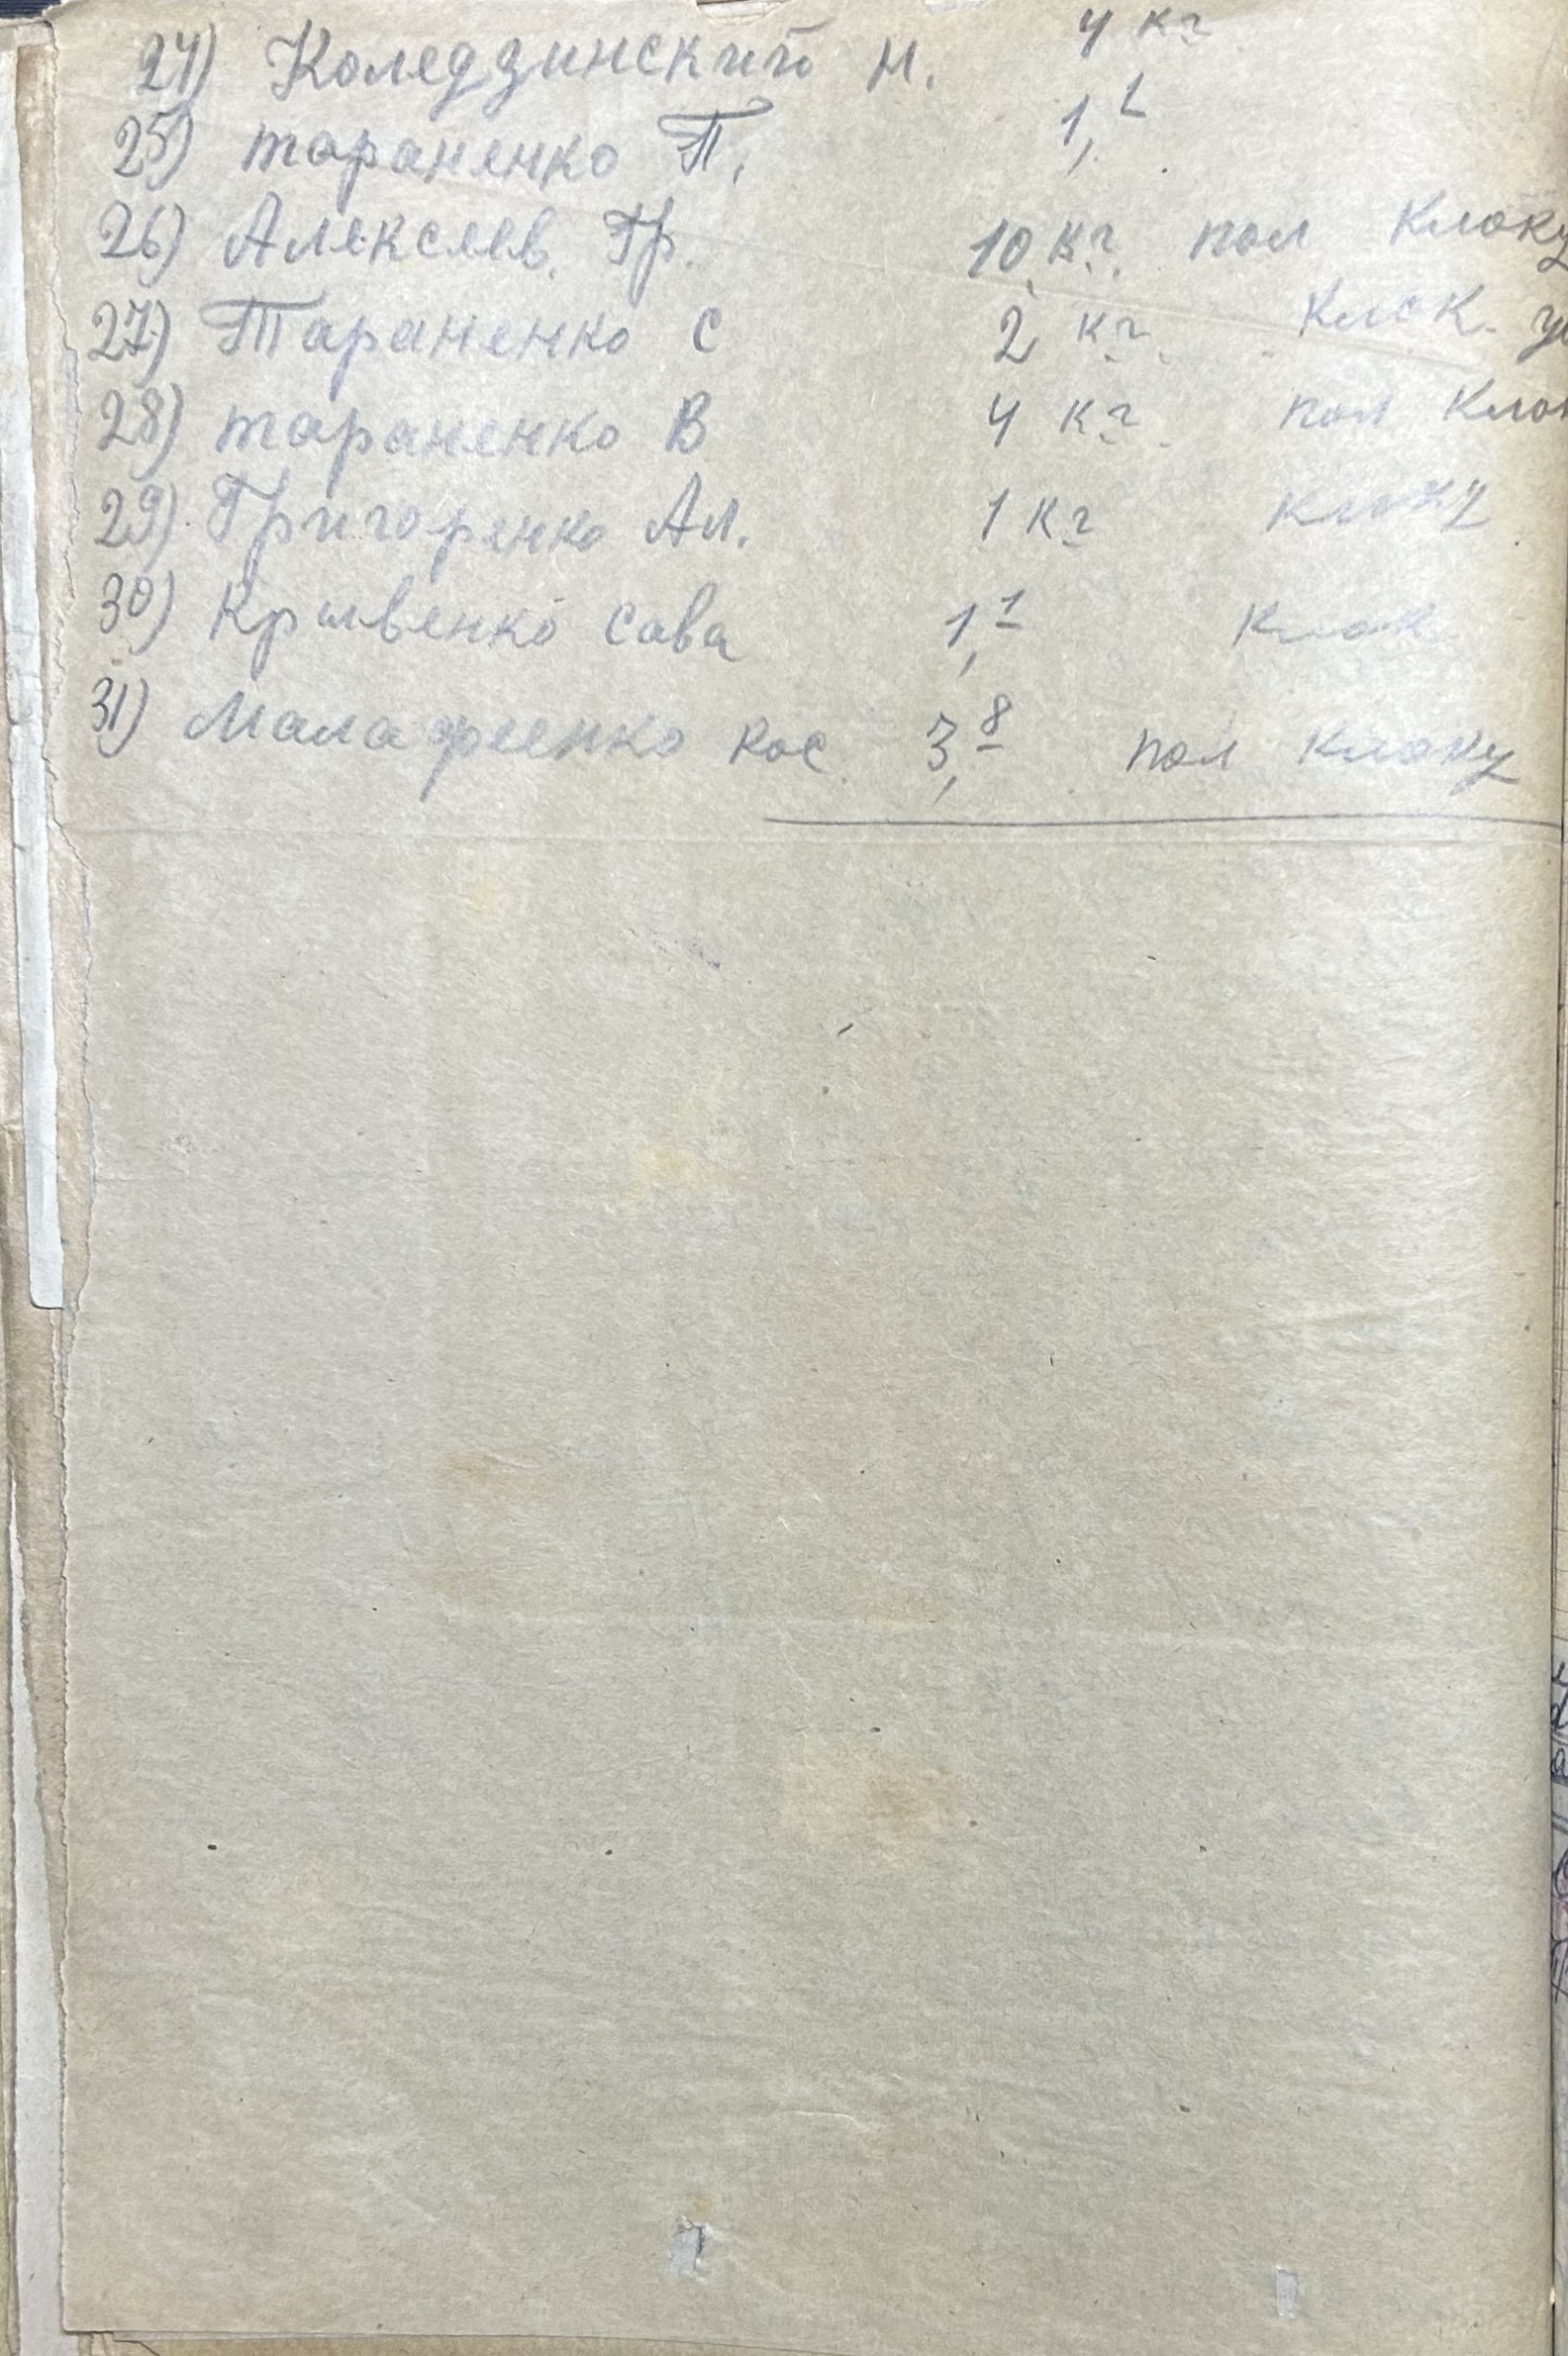 24) Коледзинский М. 4 кг
25) тараненко П. 1,1
26) Алексеев. Гр. 10 кг. пол клоку
27) Тараненко С 2 кг. клок.
28) тараненко В 4 кг. пол
29) Григоренко Ал. 1 кг клоку
30) Кривенко Сава 1,1 клок
31) Малафеенко Кос. 3,8 пол клоку